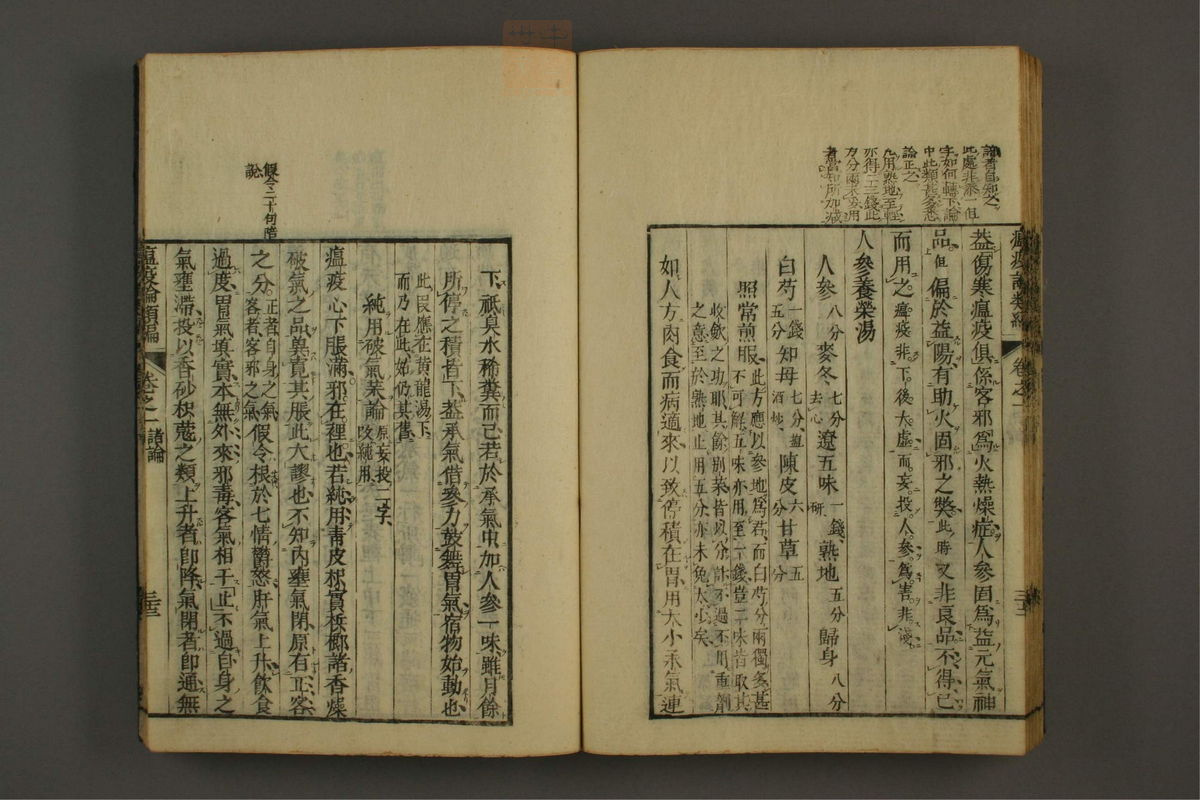 論者自知之
此處非添一但
字如何轉下論
中此類甚多悉
論正之
凡用熟地至輕
亦得二三錢此
方分兩不妥用
者當知所加減
蓋傷寒瘟疫俱係客邪爲火熱燥症人參固爲益元氣神
品但偏於益陽有助火固邪之弊此時又非良品不得已
而用之瘟疫非下後大虛而妄投人參爲害非淺
人參養榮湯
人參八分麥冬七分去心遼五味一錢研熟地五分歸身八分
白芍一錢五分知母七分鹽酒炒陳皮六分甘草五分
照常煎服此方應以參地爲君而白芍分兩獨多甚
不可解五味亦用至一錢豈二味皆取其
收斂之功耶其餘别藥皆以分計不過不用重劑
之意至於熟地止用五分亦未免太少矣
如人方肉食而病適來以致停積在胃用大小承氣連
瘟疫論類編
卷之一
假令二十句暗
説
下祇臭水稀糞而已若於承氣中加人參一味雖月餘
所停之積皆下蓋承氣借參力鼓舞胃氣宿物始動也
此叚應在黄龍湯下
而乃在此姑仍其舊
純用破氣藥論原妄投二字改純用
瘟疫心下脹滿邪在裡也若純用青皮枳實梹榔諸香燥
破氣之品兾寛其脹此大謬也不知内壅氣閉原有正客
之分正者自身之氣客者客邪之氣假令根於七情鬱怒肝氣上升飲食
過度胃氣填實本無外來邪毒客氣相干止不過自身之
氣壅滯投以香砂枳蔻之類上升者卽降氣閉者卽通無
瘟疫論類編
卷之一
諸論
三三